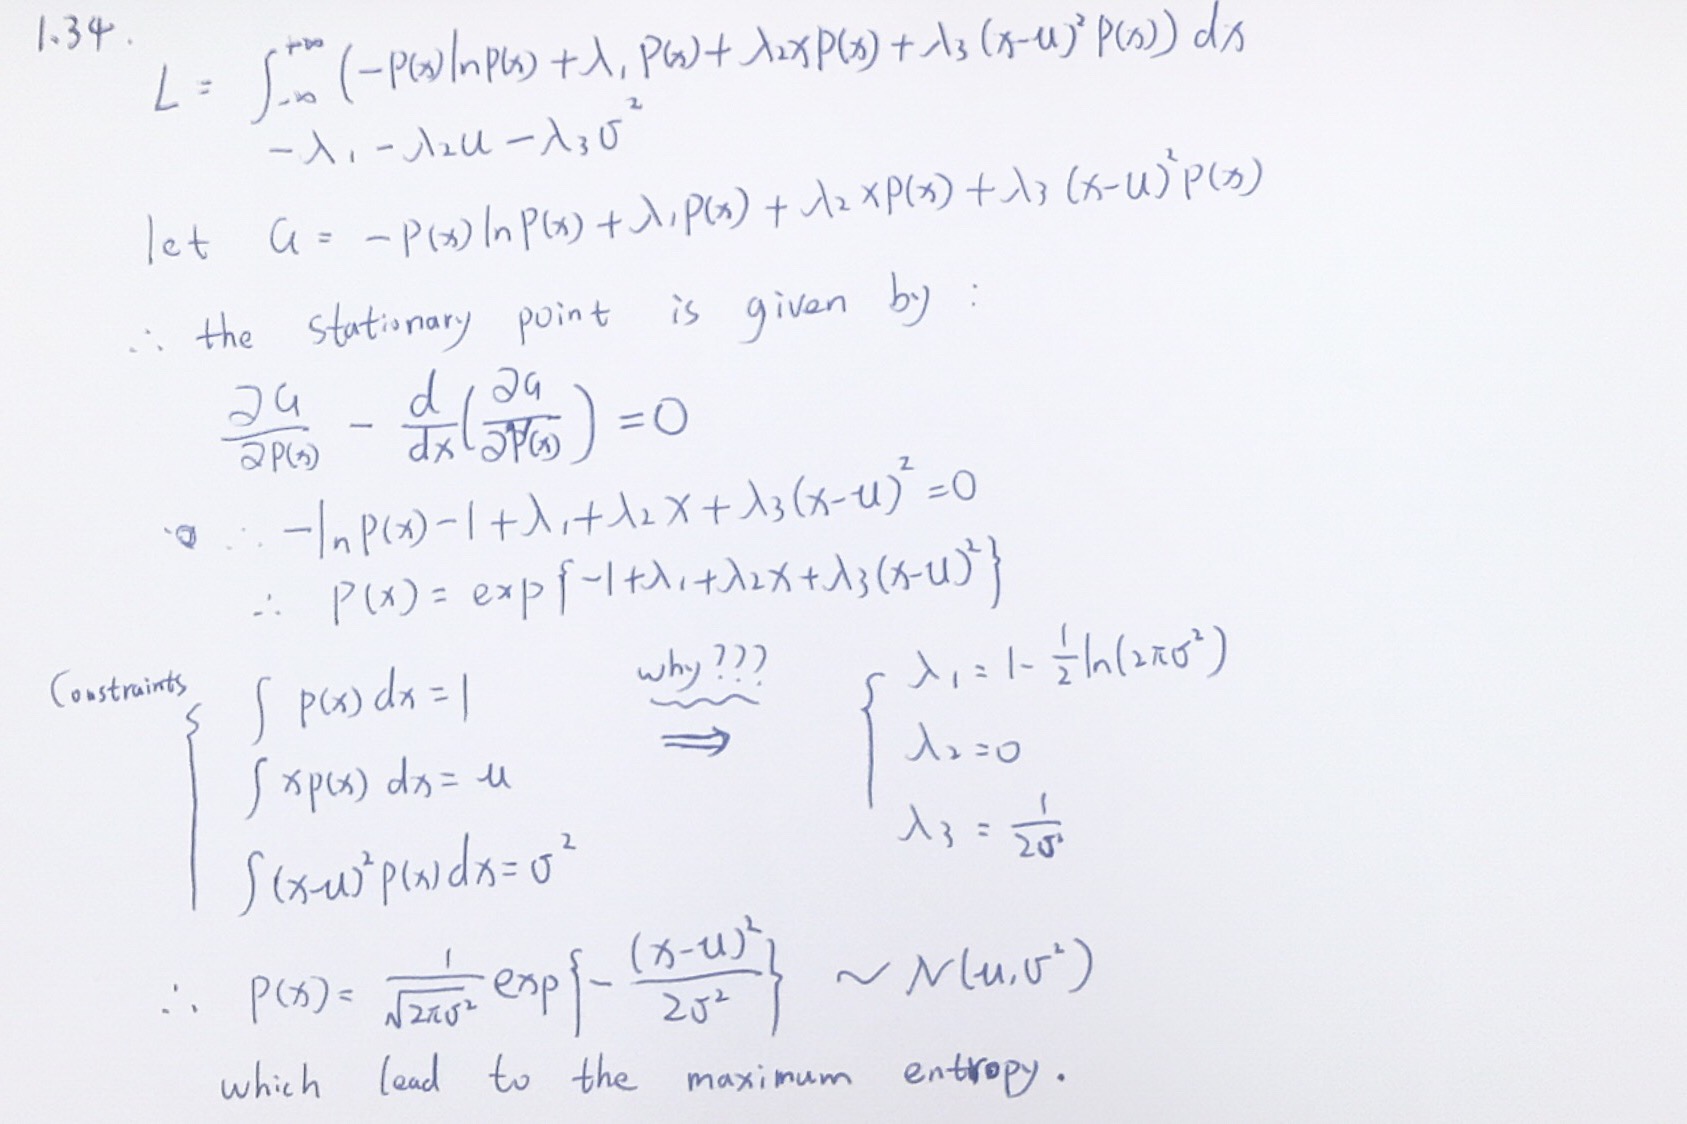 1.34.
L = ∫_{-∞}^{+∞} (-p(x) ln p(x) + λ₁ p(x) + λ₂ x p(x) + λ₃ (x-u)² p(x)) dx
- λ₁ - λ₂u - λ₃σ²
let G = - p(x) ln p(x) + λ₁ p(x) + λ₂ x p(x) + λ₃ (x-u)² p(x)
∴ the stationary point is given by :
∂G/∂p(x) - d/dx (∂G/∂p'(x)) = 0
∴ -ln p(x) - 1 + λ₁ + λ₂ x + λ₃ (x-u)² = 0
∴ p(x) = exp{-1 + λ₁ + λ₂x + λ₃(x-u)²}
Constraints
{ ∫ p(x) dx = 1
∫ x p(x) dx = u
∫ (x-u)² p(x) dx = σ²
why???
⇒
{ λ₁ = 1 - 1/2 ln(2πσ²)
λ₂ = 0
λ₃ = 1/2σ²
∴ p(x) = 1/√2πσ² exp{- (x-u)²/2σ²} ~ N(u, σ²)
which lead to the maximum entropy.